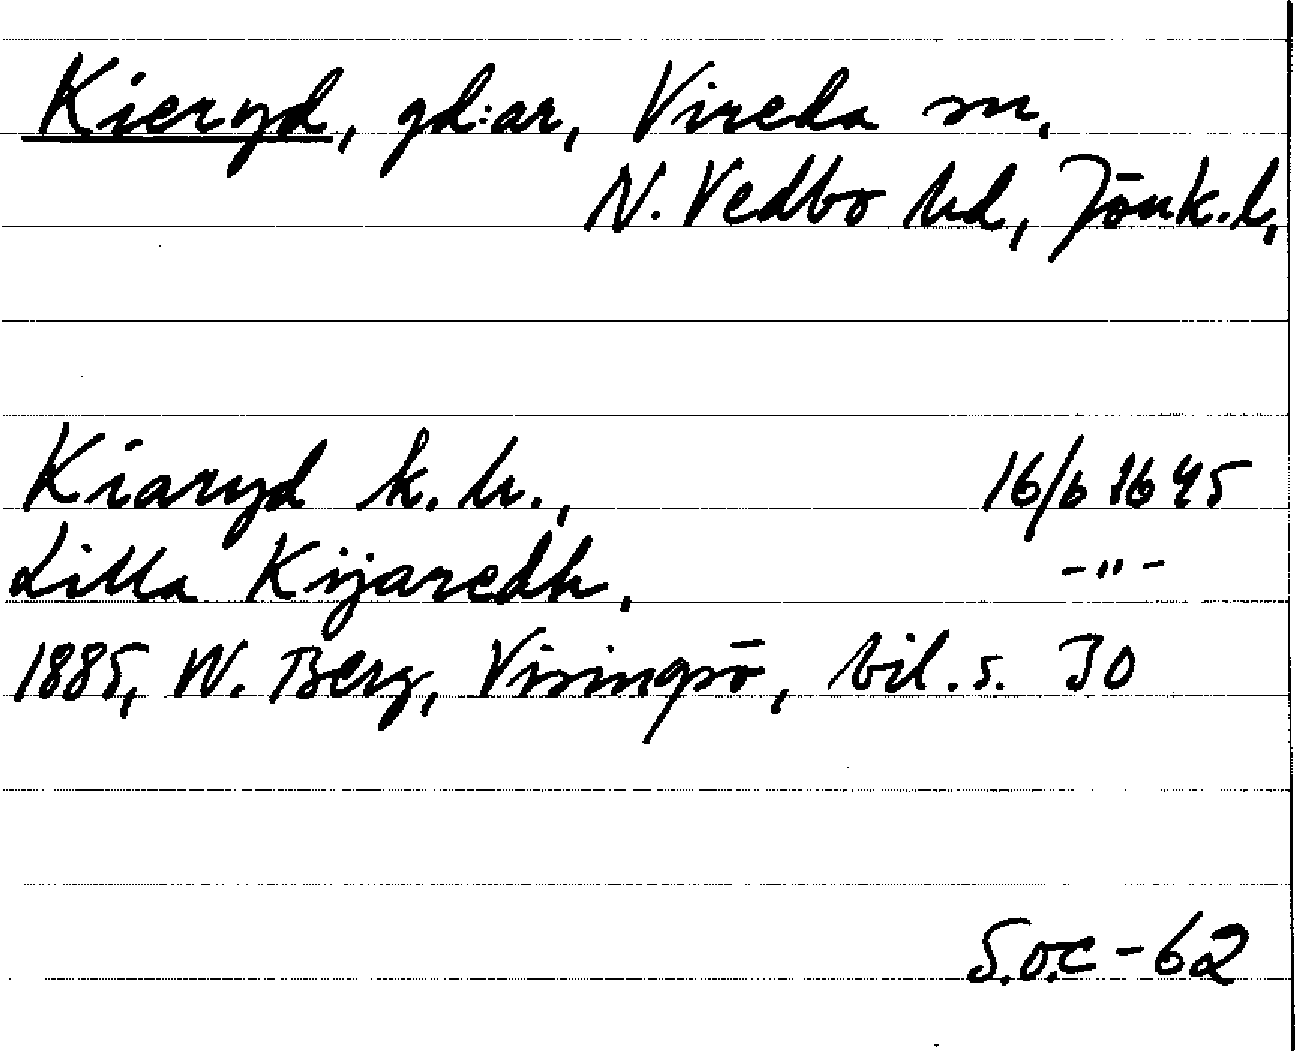 Kieryd, gd:ar, Vireda sn,
N. Vedbo hd, Jönk.l,
Kiaryd k. h., 16/6 1645
Lilla Kijaredh, -"-
1885, W. Berg, Visingsö, bil. s. 30
S.O.C - 62